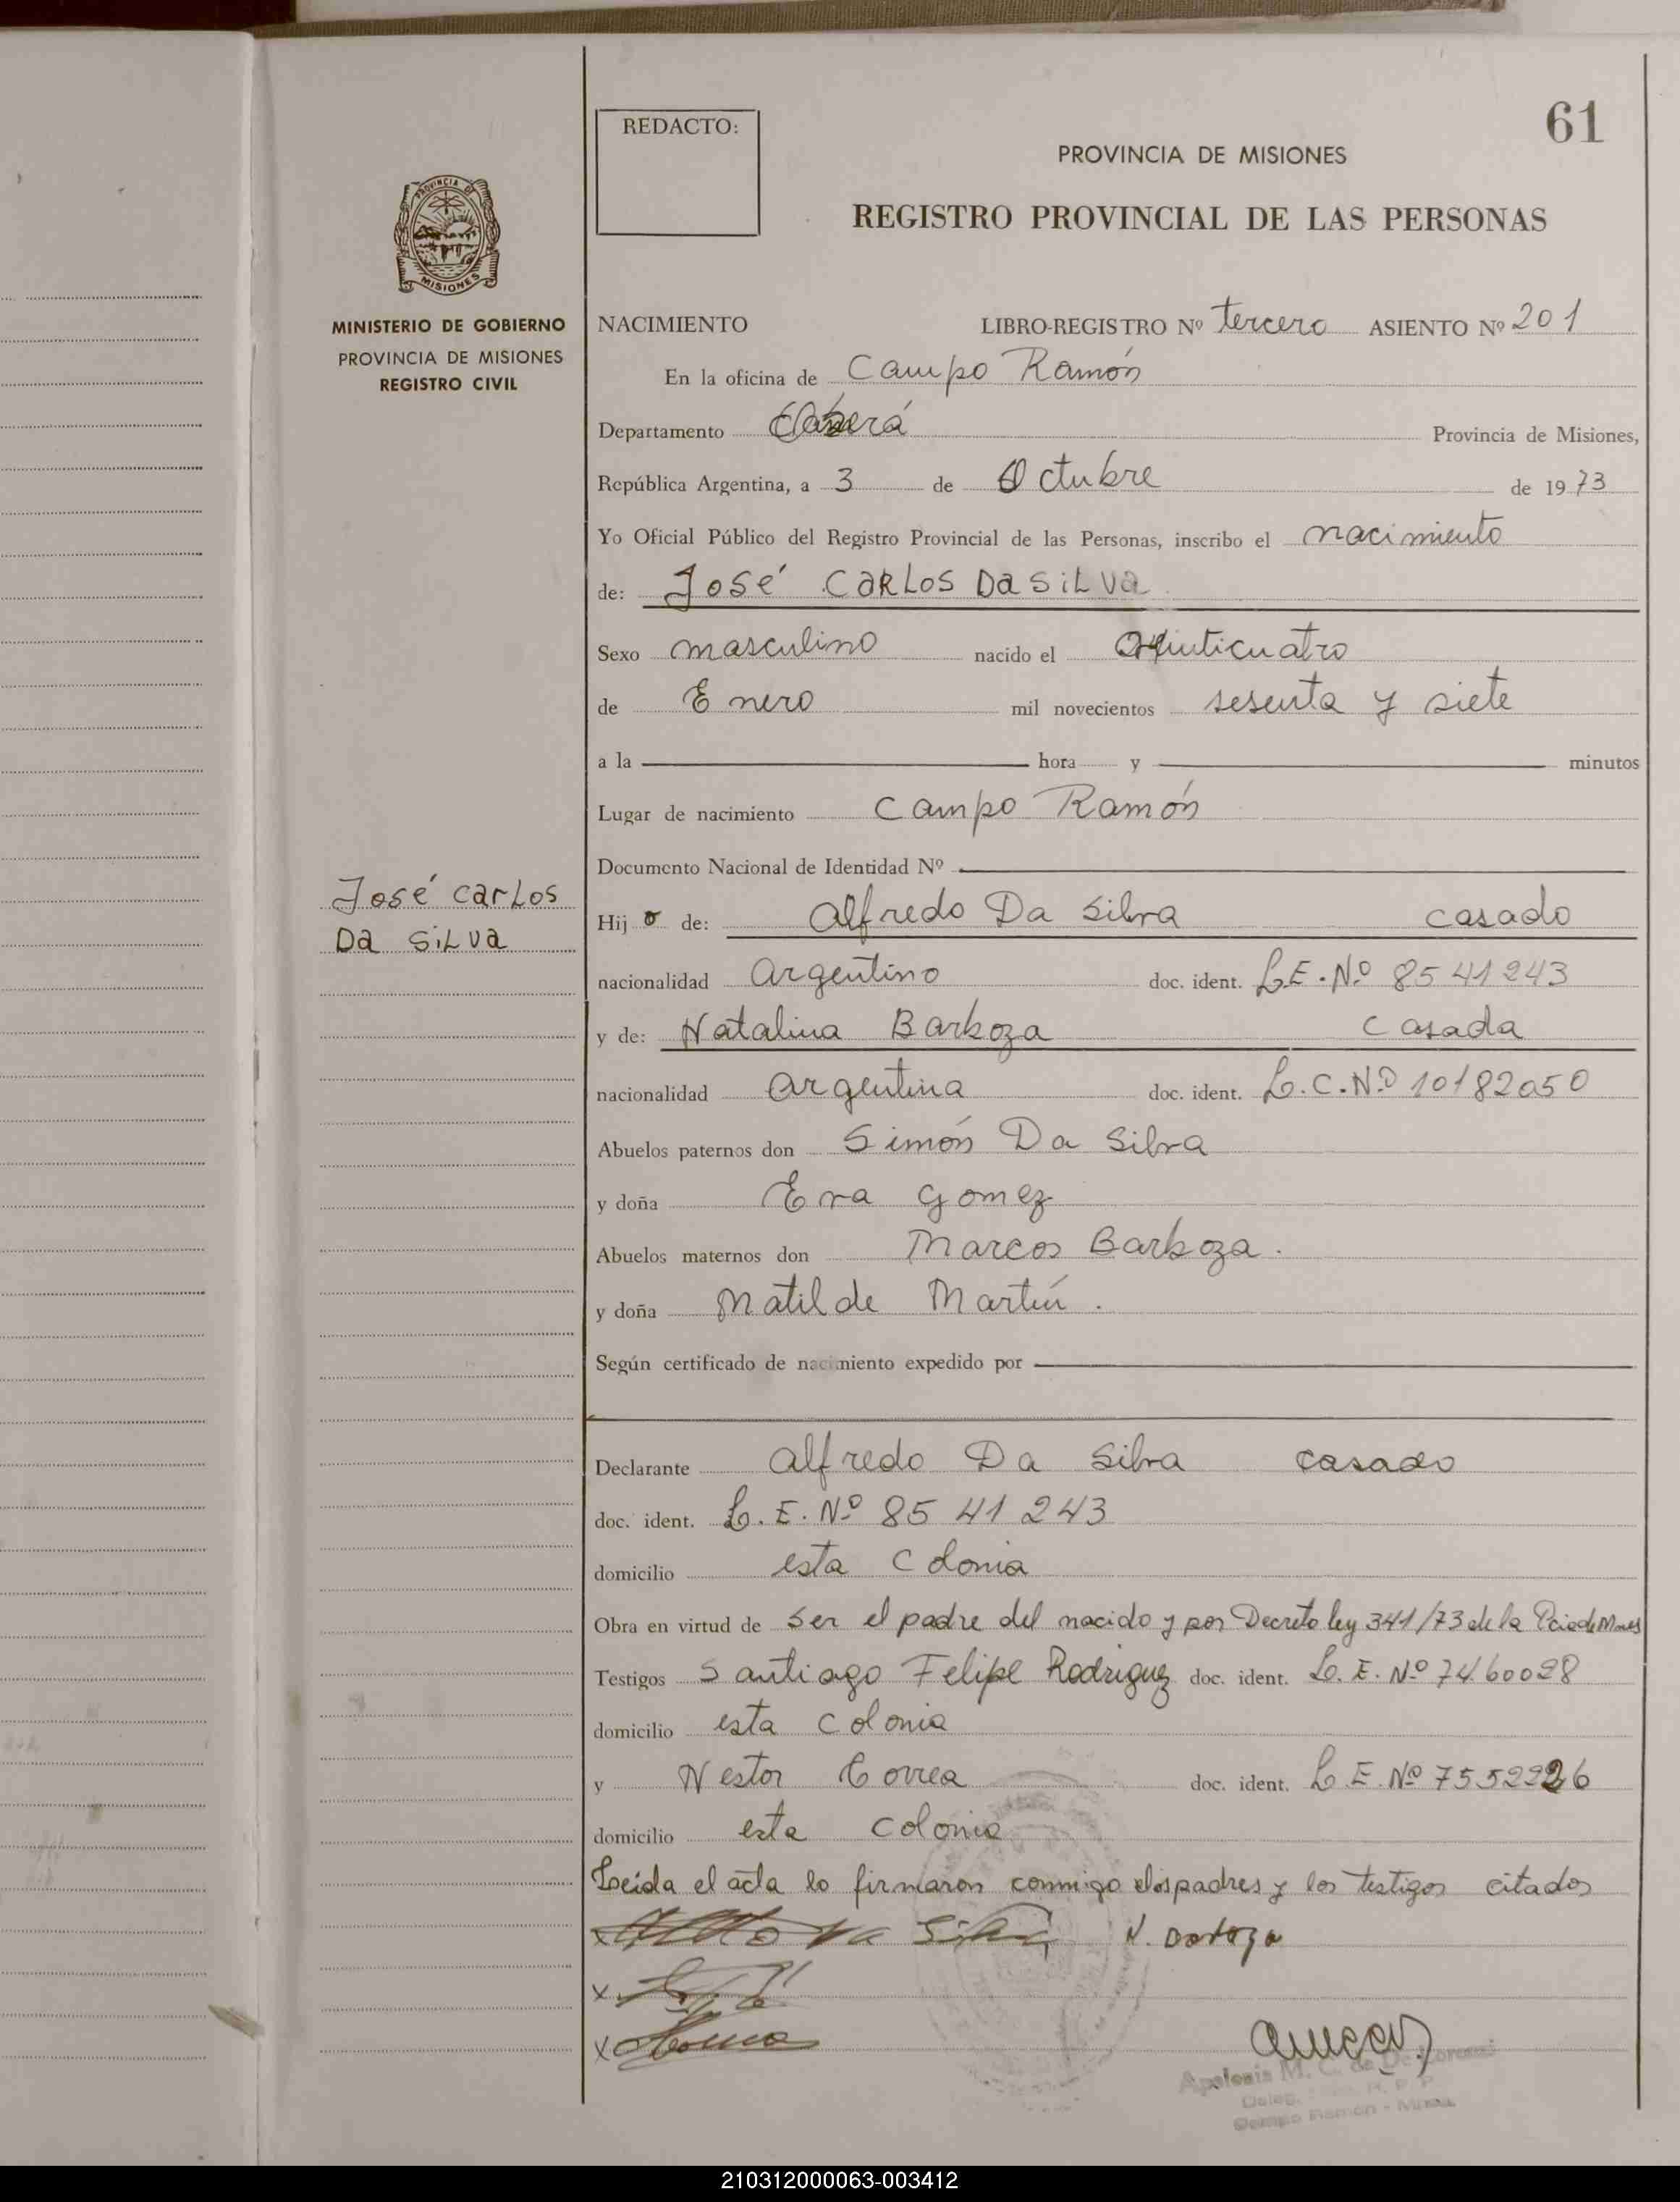 61
REDACTO:
PROVINCIA DE MISIONES
REGISTRO PROVINCIAL DE LAS PERSONAS
PROVINCIA DE
MISIONES
MINISTERIO DE GOBIERNO
PROVINCIA DE MISIONES
REGISTRO CIVIL
NACIMIENTO LIBRO-REGISTRO Nº tercero ASIENTO Nº 201
En la oficina de Campo Ramón
Departamento Oberá Provincia de Misiones,
República Argentina, a 3 de Octubre de 1973
Yo Oficial Público del Registro Provincial de las Personas, inscribo el nacimiento
de: José CARLOS Da SiLva
Sexo masculino nacido el veinticuatro
de Enero mil novecientos sesenta y siete
a la hora y minutos
Lugar de nacimiento Campo Ramón
Documento Nacional de Identidad Nº
José carLos
Da SiLva
Hijo de: Alfredo Da Silva casado
nacionalidad argentino doc. ident. L.E.Nº 8541243
y de: Natalina Barboza casada
nacionalidad argentina doc. ident. L.C.Nº 10182050
Abuelos paternos don Simón Da Silva
y doña Eva Gomez
Abuelos maternos don Marcos Barboza.
y doña Matilde Martín.
Según certificado de nacimiento expedido por
Declarante Alfredo Da Silva casado
doc. ident. L.E. Nº 85 41 243
domicilio esta Colonia
Obra en virtud de Ser el padre del nacido y por Decreto ley 341/73 de la Pcia de Mnes
Testigos Santiago Felipe Rodriguez doc. ident. L.E. Nº 7460028
domicilio esta Colonia
y Nestor Correa doc. ident. L.E. Nº
domicilio esta Colonia
Leida el acta lo firmaron conmigo los padres y los testigos citados
x Da Silva N. Barboza
x
x
Apolonia M. C. de De Lorenzi
Campo Ramón - Mnes.
210312000063-003412